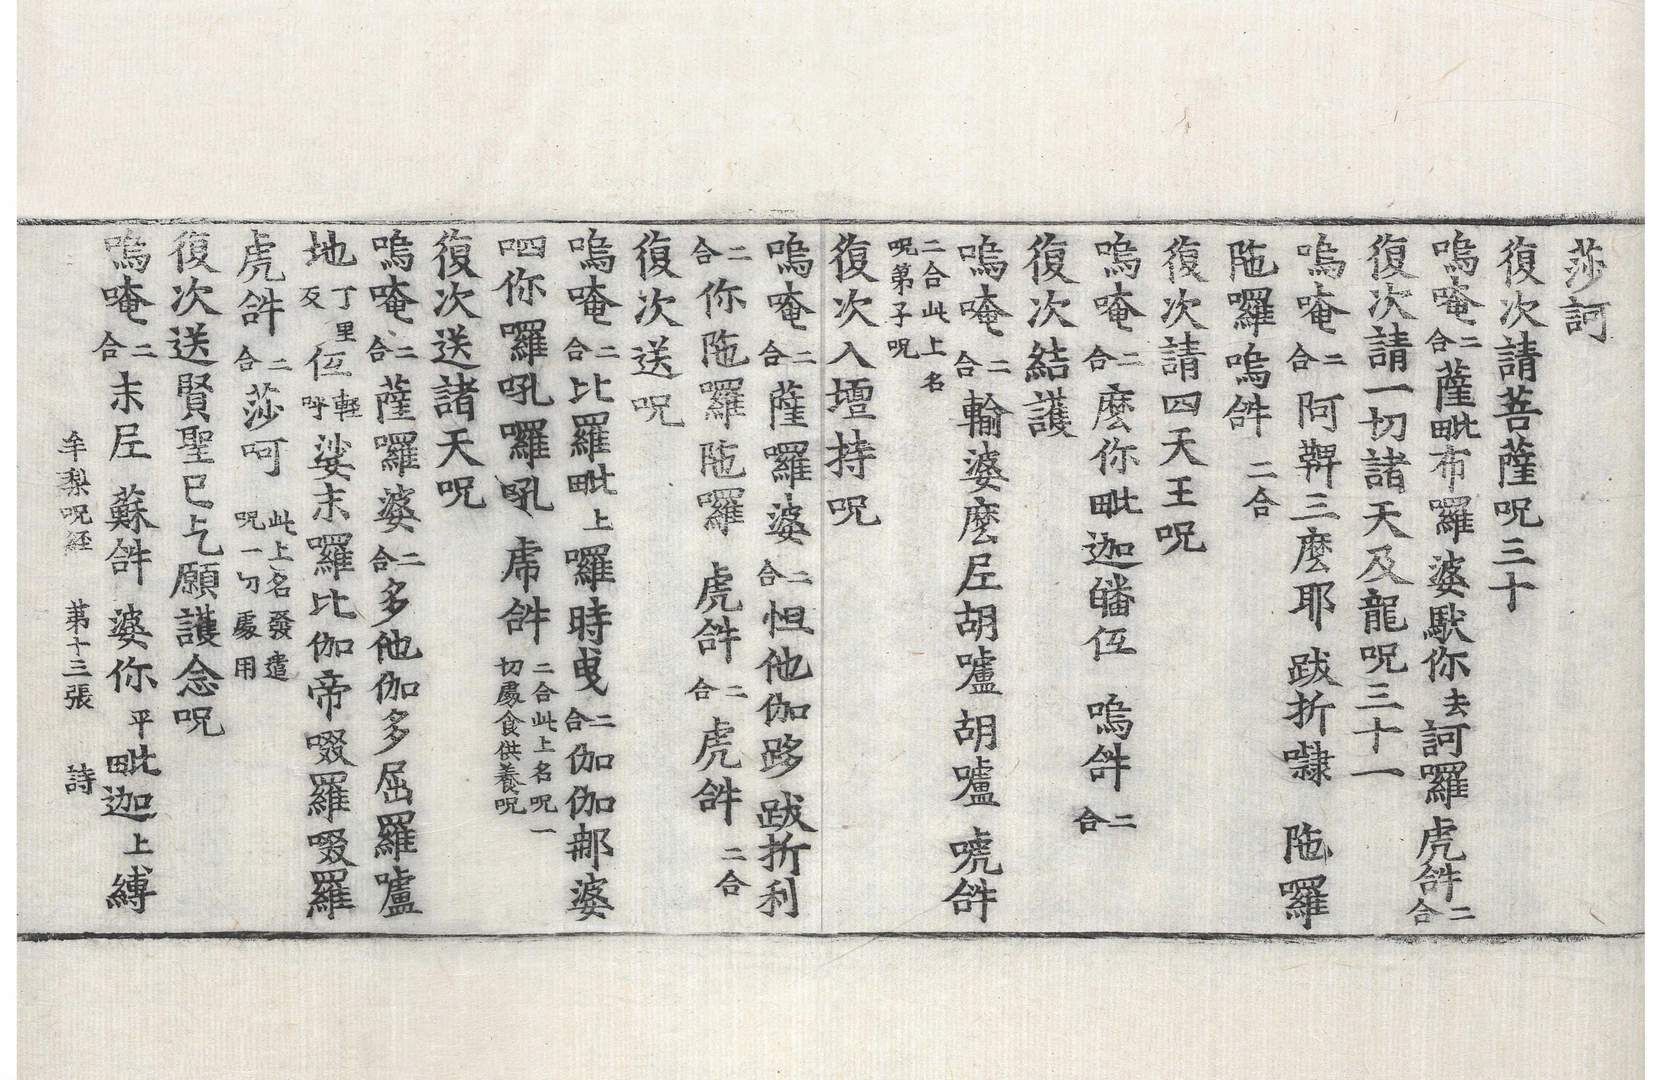 莎訶
復次請菩薩呪三十
嗚唵二合薩毗布羅婆馱你去訶囉虎𤙖二合
復次請一切諸天及龍呪三十一
嗚唵二合阿鞞三麼耶 跋折㘑 陁囉
陁囉嗚𤙖二合
復次請四天王呪
嗚唵二合麼你毗迦皤仾 嗚𤙖二合
復次結護
嗚唵二合輸婆麼𡰱胡嚧 胡嚧 唬𤙖
二合此上名呪弟子呪
復次入壇持呪
嗚唵二合薩囉婆二合怛他伽跢 跋折利
二合你陁囉陁囉 虎𤙖二合虎𤙖二合
復次送呪
嗚唵二合比羅毗上囉時曳二合伽伽那婆
呬你囉吼囉吼 虎𤙖二合此上名呪一切處食供養呪
復次送諸天呪
嗚唵二合薩囉婆二合多他伽多屈羅嚧
地丁里反仾輕呼娑末羅比伽帝啜羅啜羅
虎𤙖二合莎呵此上名發遣呪一切處用
復次送賢聖已乞願護念呪
嗚唵二合末𡰱 蘇𤙖 婆你平毗迦上縛
牟梨呪經 第十三張 詩